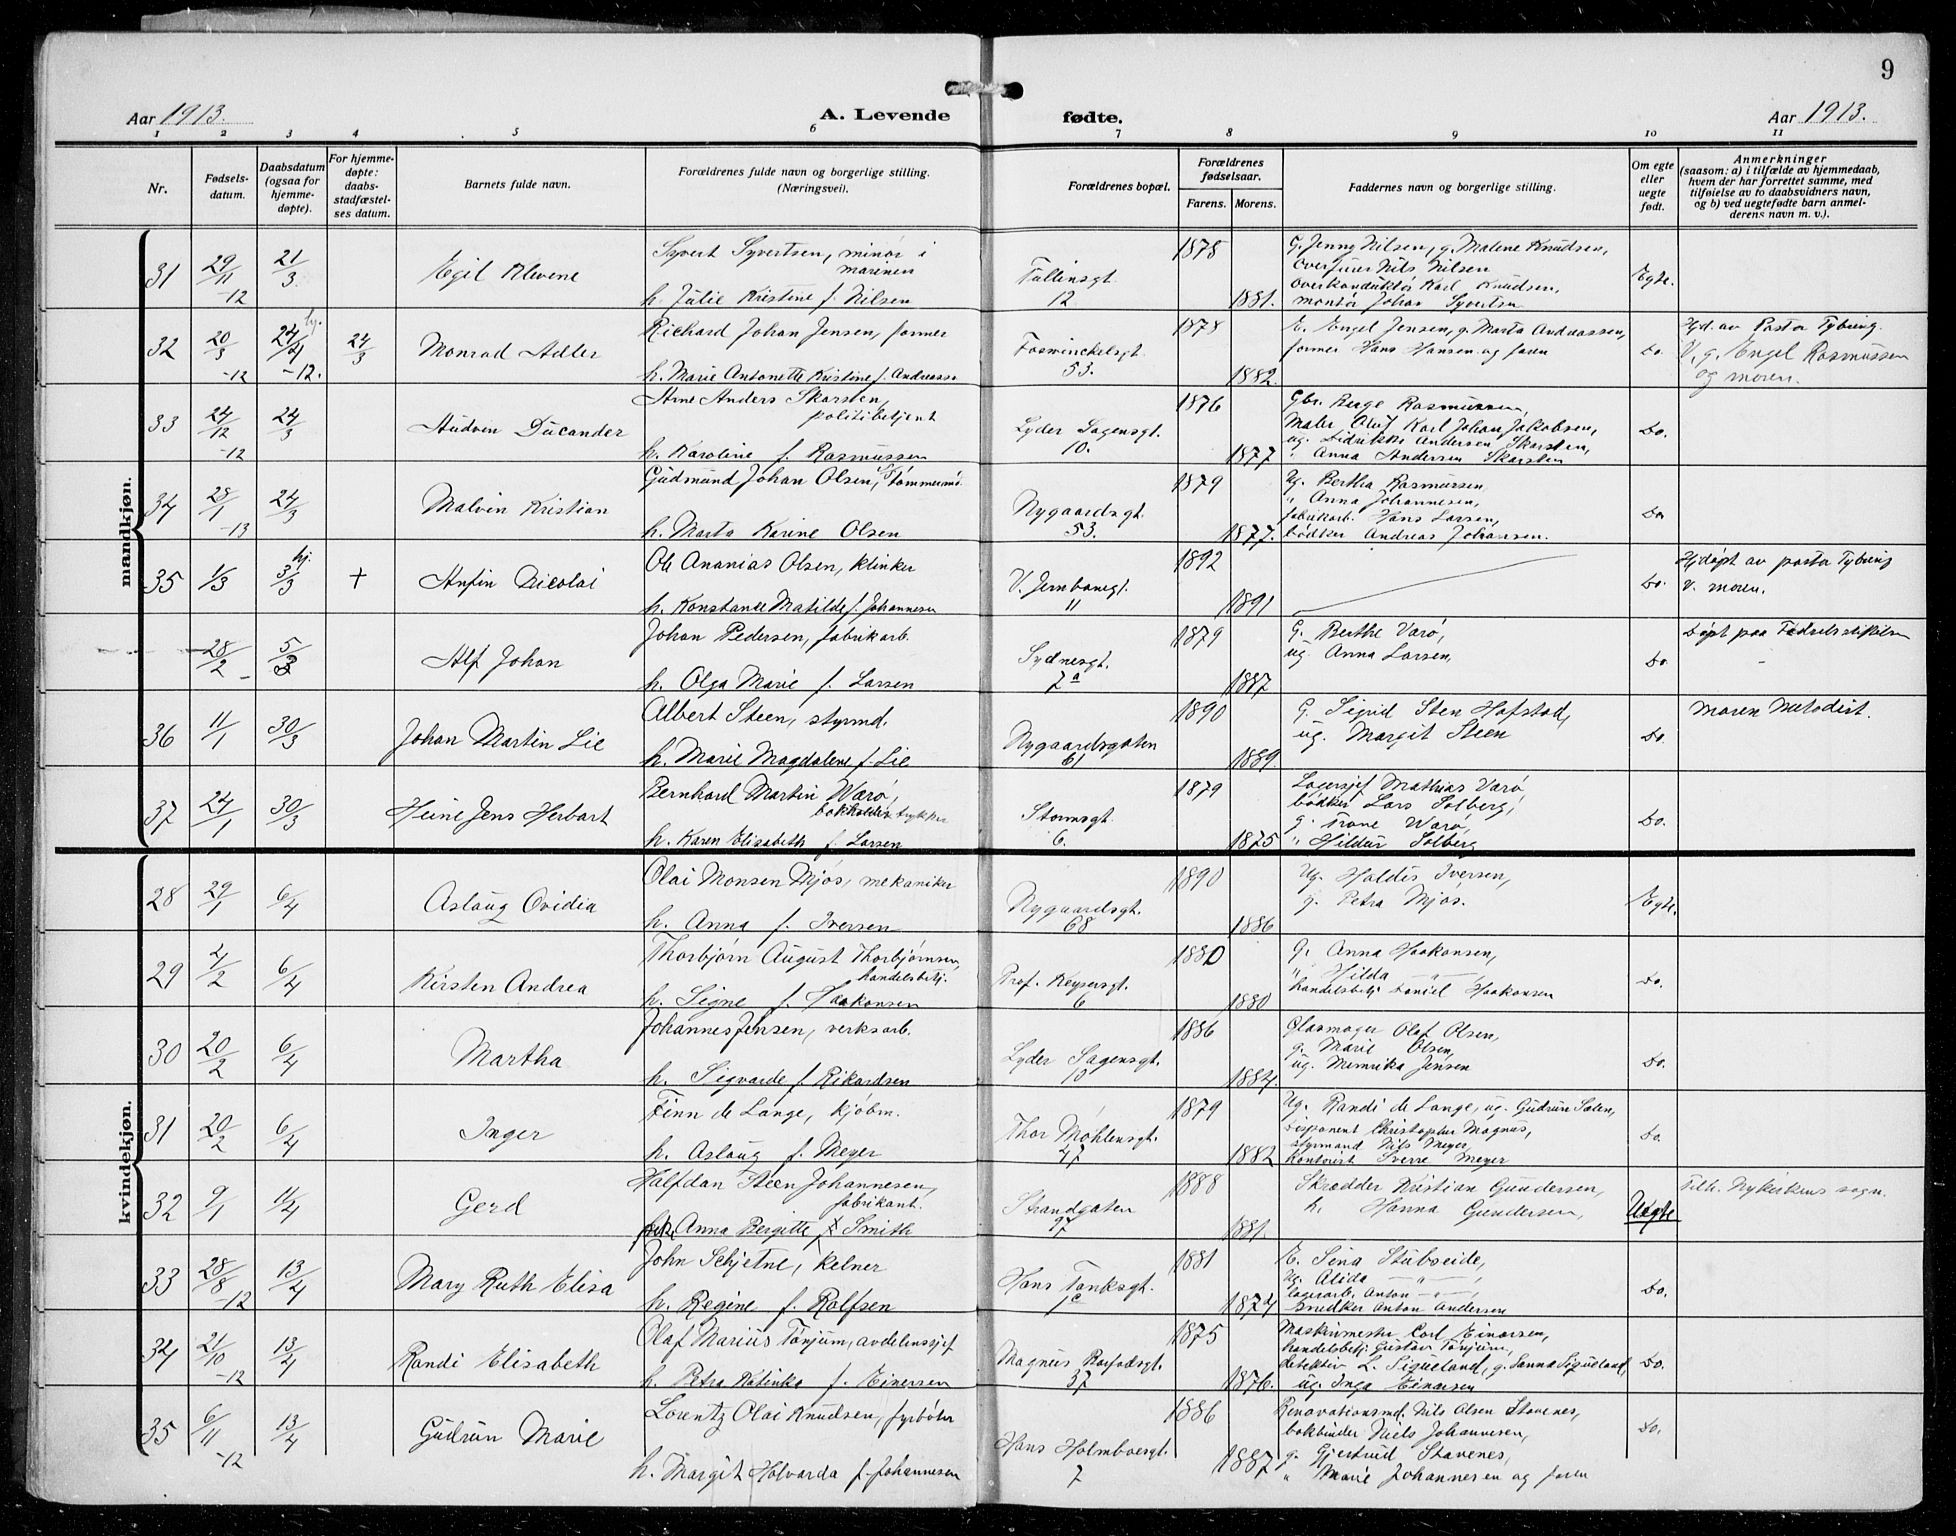 9
Aar 1913.
A. Levende fødte.
Aar 1913.
1 2 3 4 5 6 7 8 9 10 11
Nr.
Fødsels-
datum.
Daabsdatum
(ogsaa for
hjemme-
døpte).
For hjemme-
døpte:
daabs-
stadfæstel-
ses datum.
Barnets fulde navn.
Forældrenes fulde navn og borgerlige stilling.
(Næringsvei).
Forældrenes bopæl.
Forældrenes
fødselsaar.
Farens. Morens.
Faddernes navn og borgerlige stilling.
Om egte
eller
uegte
født.
Anmerkninger
(saasom: a) i tilfælde av hjemmedaab,
hvem der har forrettet samme, med
tilføielse av to daabsvidners navn,
og b) ved uegtefødte barn anmel-
derens navn m. v.).
mandkjøn.
31 29/11 -12 21/3 Egil Klevene
Syvert Syvertsen, minør i
marenen
h. Julie Kristine f. Nilsen
Tullinsgt.
12
1878
1881.
G. Jenny Nilsen, g. Malene Knudsen,
Nils Nilsen
overkonduktør Karl Knudsen,
montør Johan Syvertsen
Egte.
32 20/3 -12 hj. 24/21 -12. 24/3 Monrad Adler
Richard Johan Jensen, former
h. Marie Antonette Kristine f. Andreasse
Foswinckelsgt.
53.
1878
1882.
E. Engel Jensen, g. Marta Andreassen,
former Hans Hansen og faren
Do.
Hjd. av Pastor Tybring.
V. g. Engel Rasmussen
og moren.
33 24/12 -12 24/3 Audven Ducander
Arne Anders Skarsten,
politibetjent
h. Karoline f. Rasmussen
Lyder Sagensgt.
10.
1876
1877
Gbr. Berge Rasmussen,
Maler Oluf Karl Johan Jakobsen,
ug. Didrikke Andersen Skarsten,
" Anna Andersen Skarsten
Do.
34 28/1 -13 24/3 Malvin Kristian
Gudmund Johan Olsen, Tømmerm.
h. Marta Karine Olsen
Nygaardsgt.
53.
1879
1877.
Ug. Bertha Rasmussen
" Anna Johannesen,
fabrikarb. Hans Larsen,
bødker Andreas Johansen.
Do
35 1/3 hj. 3/3 + Anfin Nicolai
Ole Ananias Olsen, klinker
h. Konstance Matilde f. Johannesen
V. Jernbanegt.
11
1892
1891
Do.
Hjdøpt av pastor Tybring
V. moren.
28/2 - 5/3 Alf Johan
Johan Pedersen, fabrikarb.
h. Olga Marie f. Larsen
Sydnesgt.
7 a
1879
1887
G. Berthe Varø,
ug. Anna Larsen,
Do.
Døpt paa Fødselsstiftelsen
36 11/1 30/3 Johan Martin Lie
Albert Steen, styrmd.
h. Marie Magdalene f. Lie
Nygaardsgaten
61
1890
1889.
G. Sigrid Sten Hofstad,
ug. Margit Steen
Do.
Moren Metodist.
37 24/1 30/3 Heine Jens Herbart
Bernhard Martin Warø,
boktrykker
h. Karen Elisabeth f. Larsen
Stormsgt.
6.
1879
1875
Lagersjef Mathias Varø,
bødker Lars Solberg,
g. Trone Warø,
" Hildur Solberg
Do.
kvindekjøn.
28 29/1 6/4 Aslaug Ovidia
Olai Monsen Mjøs, mekaniker
h. Anna f. Iversen
Nygaardsgt.
68
1890
1886
Ug. Haldis Iversen,
g. Petra Mjøs.
Egte.
29 2/2 6/4 Kirsten Andrea
Thorbjørn August Thorbjørnsen,
handelsbetj.
h. Signe f. Haakonsen
Prof. Keysersgt.
6
1880
1880
G. Anna Haakonsen,
" Hilda — " —,
handelsbetj Daniel Haakonsen
Do.
30 20/2 6/4 Martha
Johannes Jensen, verksarb.
h. Sigvarde f. Rikardsen
Lyder Sagensgt.
10
1886
1884.
Glasmager Olaf Olsen,
g. Marie Olsen,
ug. Jensen
Do.
31 20/2 6/4 Inger
Finn de Lange, kjøbm.
h. Aslaug f. Meyer
Thor Møhlensgt.
47
1879
1882
Ug. Randi de Lange, ug. Gudrun Salen,
Disponent Christopher Magnus,
styrmand Nils Meyer,
Kontorist Sverre Meyer
Do.
32 9/1 11/4 Gerd
Halfdan Steen Johannesen,
fabrikant.
Anna Bergitte Smith
Strandgaten
97
1888
1881.
Skrædder Kristian Gundersen,
h. Hanna Gundersen,
Uegte
Tilh. Nykirkens sogn.
33 28/8 -12 13/4 Mary Ruth Elisa
John Schjetne, kelner
h. Regine f. Rolfsen
Hans Tanksgt.
1 c
1881
1874
E. Sina Stubseide,
Ug. Alida — " —,
lagerarb. Anton — " —,
snedker Anton Andersen
Do.
34 21/10 -12 13/4 Randi Elisabeth
Olaf Marius Tønjum, avdelinssjef
h. Petra Katinka f. Einersen
Magnus Barfodsgt.
37
1875
1876.
Maskinmester Carl Einarsen,
handelsbetj. Gustav Tønjum,
detektiv L. Sigueland, g. Sanna Sigueland,
ug. Inga Einarsen
Do.
35 6/11 -12 13/4 Gudrun Marie
Lorentz Olai Knudsen, fyrbøter
h. Margit Holvarda f. Johannesen
Hans Holmboesgt.
7
1886
1887
Renovationsmd. Nils Olsen Stavenes,
bokbinder Niels Johannesen,
g. Gjertrud Stavenes,
" Marie Johannesen og faren
Do.